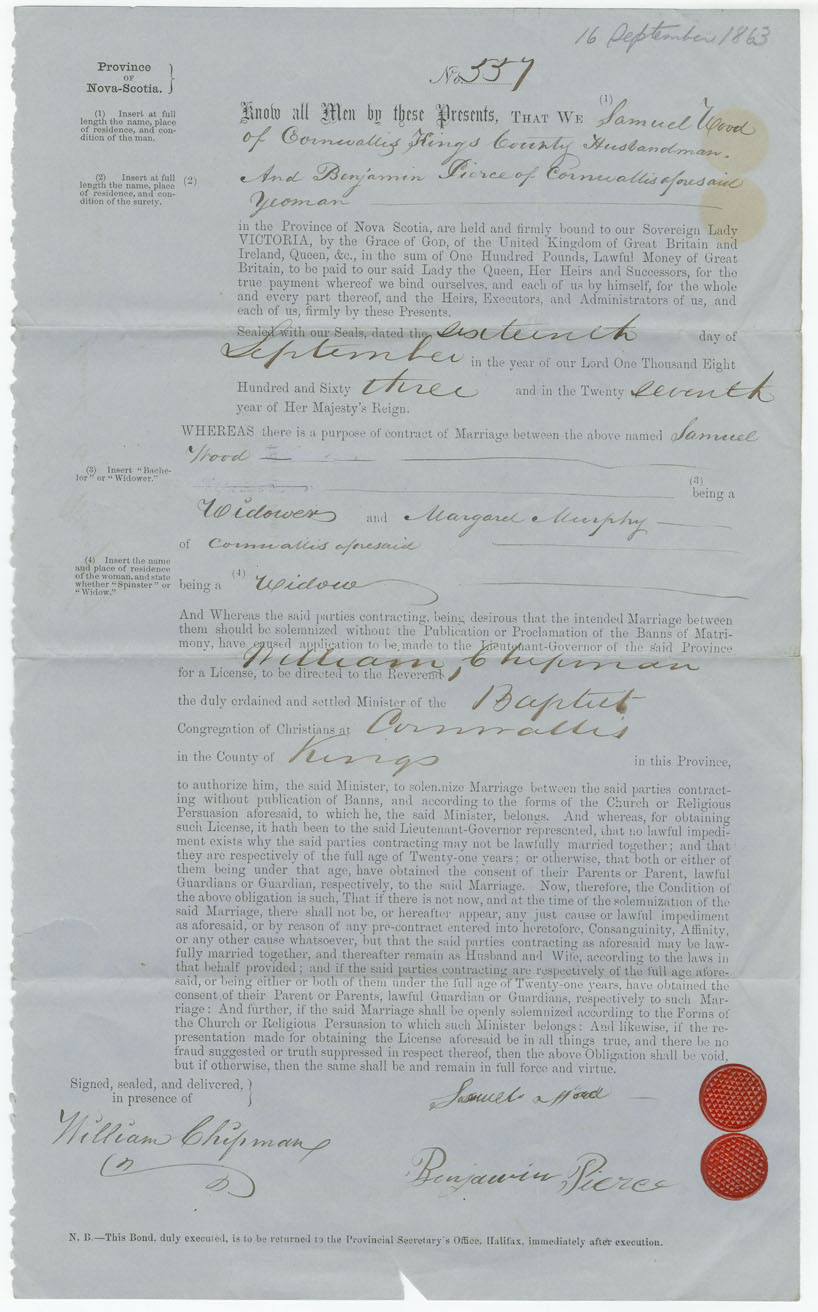 16 September 1863
Province
OF
Nova-Scotia. }
No. 557
(1) Insert at full
length the name, place
of residence, and con-
dition of the man.
Know all Men by these Presents, THAT WE (1) Samuel Wood
of Cornwallis Kings County Husbandman.
(2) Insert at full
length the name, place
of residence, and con-
dition of the surety.
(2) And Benjamin Pierce of Cornwallis aforesaid
Yeoman
in the Province of Nova Scotia, are held and firmly bound to our Sovereign Lady
VICTORIA, by the Grace of GOD, of the United Kingdom of Great Britain and
Ireland, Queen, &c., in the sum of One Hundred Pounds, Lawful Money of Great
Britain, to be paid to our said Lady the Queen, Her Heirs and Successors, for the
true payment whereof we bind ourselves, and each of us by himself, for the whole
and every part thereof, and the Heirs, Executors, and Administrators of us, and
each of us, firmly by these Presents.
Sealed with our Seals, dated the sixteenth day of
September in the year of our Lord One Thousand Eight
Hundred and Sixty three and in the Twenty seventh
year of Her Majesty's Reign.
WHEREAS there is a purpose of contract of Marriage between the above named Samuel
Wood
(3) Insert "Bache-
lor" or "Widower."
(3)
being a
Widower and Margaret Murphy
of Cornwallis aforesaid
(4) Insert the name
and place of residence
of the woman, and state
whether "Spinster" or
"Widow."
being a (4) Widow
And Whereas the said parties contracting, being desirous that the intended Marriage between
them should be solemnized without the Publication or Proclamation of the Banns of Matri-
mony, have caused application to be made to the Lieutenant-Governor of the said Province
for a License, to be directed to the Reverend William Chipman
the duly ordained and settled Minister of the Baptist
Congregation of Christians at Cornwallis
in the County of Kings in this Province,
to authorize him, the said Minister, to solemnize Marriage between the said parties contract-
ing without publication of Banns, and according to the forms of the Church or Religious
Persuasion aforesaid, to which he, the said Minister, belongs. And whereas, for obtaining
such License, it hath been to the said Lieutenant-Governor represented, that no lawful impedi-
ment exists why the said parties contracting may not be lawfully married together; and that
they are respectively of the full age of Twenty-one years; or otherwise, that both or either of
them being under that age, have obtained the consent of their Parents or Parent, lawful
Guardians or Guardian, respectively, to the said Marriage. Now, therefore, the Condition of
the above obligation is such, That if there is not now, and at the time of the solemnization of the
said Marriage, there shall not be, or hereafter appear, any just cause or lawful impediment
as aforesaid, or by reason of any pre-contract entered into heretofore, Consanguinity, Affinity,
or any other cause whatsoever, but that the said parties contracting as aforesaid may be law-
fully married together, and thereafter remain as Husband and Wife, according to the laws in
that behalf provided; and if the said parties contracting are respectively of the full age afore-
said, or being either or both of them under the full age of Twenty-one years, have obtained the
consent of their Parent or Parents, lawful Guardian or Guardians, respectively to such Mar-
riage: And further, if the said Marriage shall be openly solemnized according to the Forms of
the Church or Religious Persuasion to which such Minister belongs: And likewise, if the re-
presentation made for obtaining the License aforesaid be in all things true, and there be no
fraud suggested or truth suppressed in respect thereof, then the above Obligation shall be void,
but if otherwise, then the same shall be and remain in full force and virtue.
Signed, sealed, and delivered, }
in presence of
Samuel Wood
William Chipman
Benjamin Pierce
N. B.—This Bond, duly executed, is to be returned to the Provincial Secretary's Office, Halifax, immediately after execution.